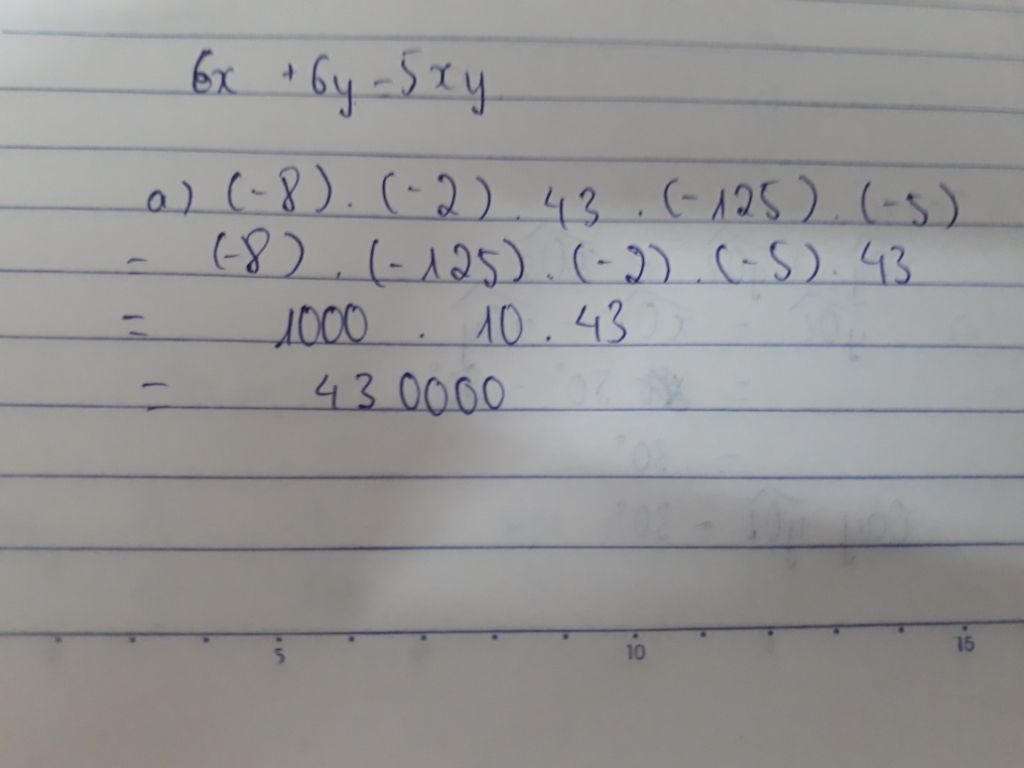 6x + 6y = 5xy
a) (-8) . (-2) . 43 . (-125) . (-5)
= (-8) . (-125) . (-2) . (-5) . 43
= 1000 . 10 . 43
= 430000
5 10 15